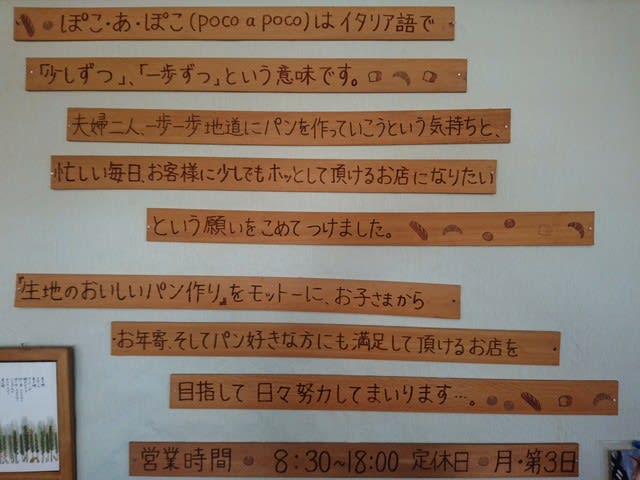 ぽこ・あ・ぽこ(poco a poco)はイタリア語で
「少しずつ」、「一歩ずつ」という意味です。
夫婦二人、一歩一歩地道にパンを作っていこうという気持ちと、
忙しい毎日、お客様に少しでもホッとして頂けるお店になりたい
という願いをこめてつけました。
『生地のおいしいパン作り』をモットーに、お子さまから
お年寄、そしてパン好きな方にも満足して頂けるお店を
目指して 日々努力してまいります…。
営業時間 8:30~18:00 定休日 月・第3日